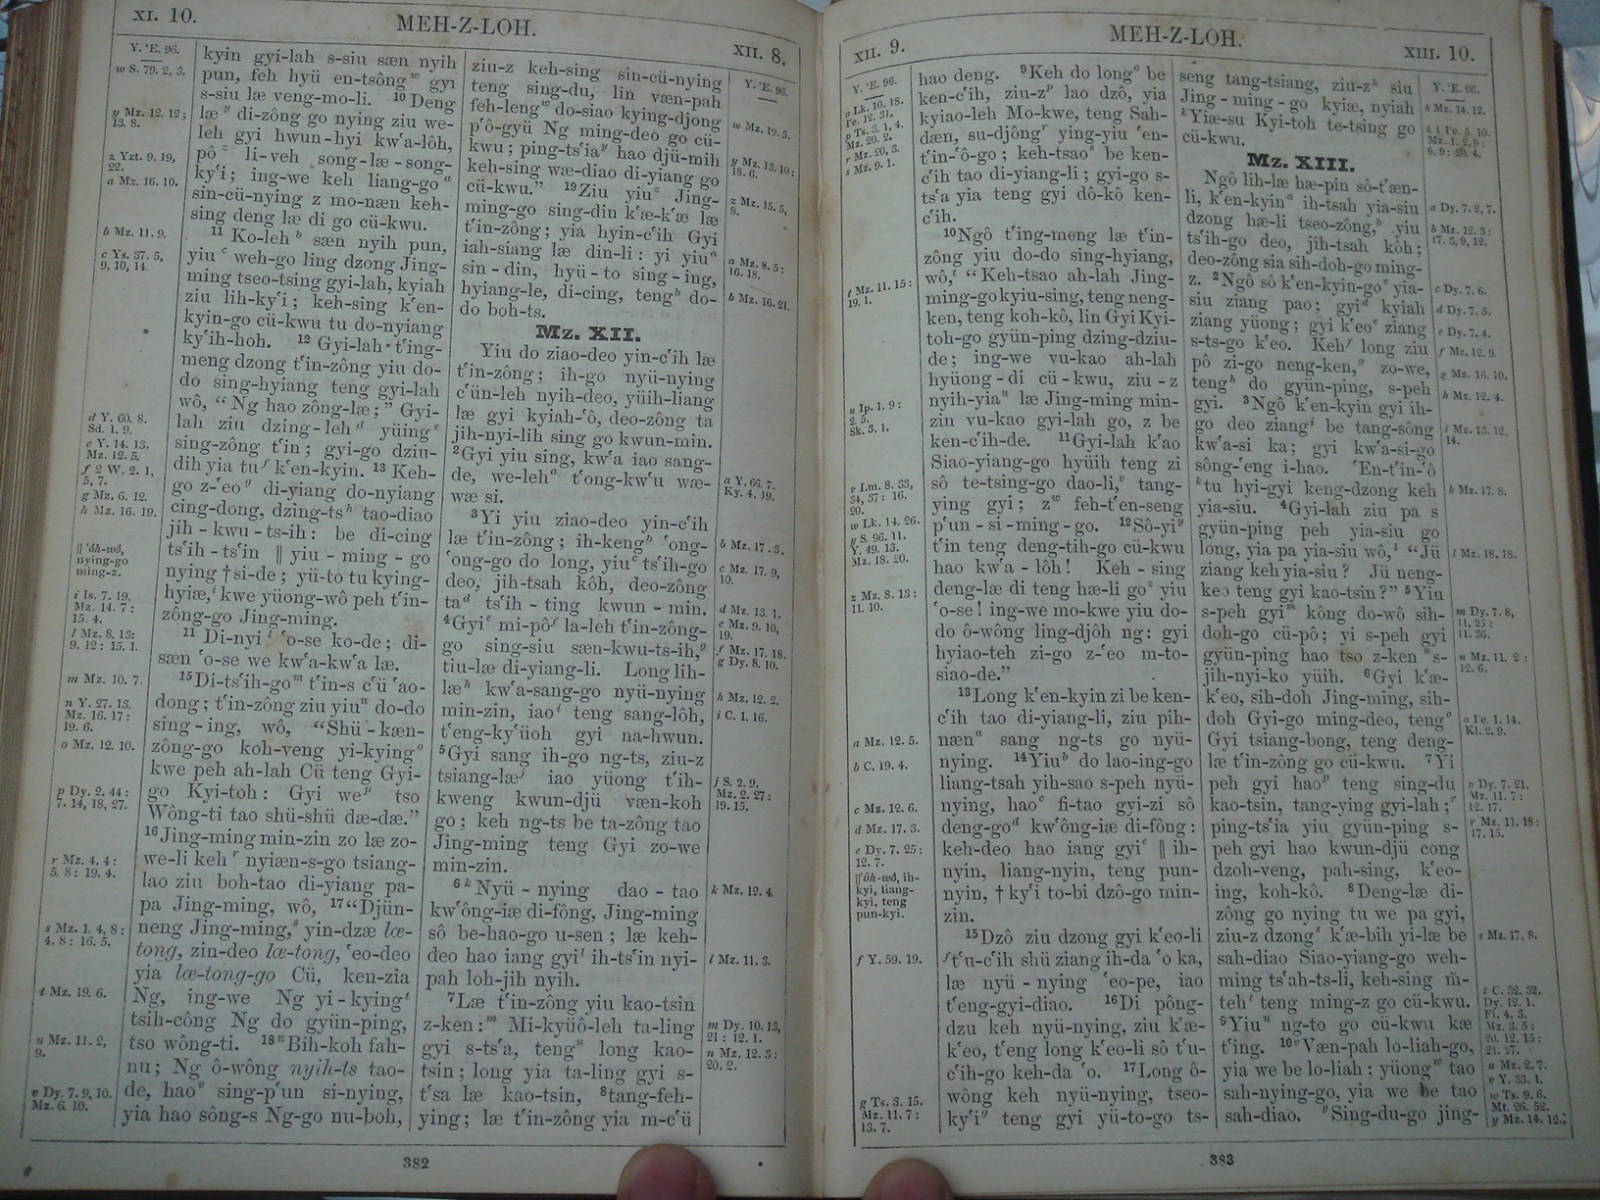 XI. 10.
MEH-Z-LOH.
XII. 8.
Y. 'E. 96.
w S. 79. 2, 3.
y Mz. 12. 12;
13. 8.
z Yzt. 9. 19,
22.
a Mz. 16. 10.
b Mz. 11. 9.
c Ys. 37. 5,
9, 10, 14.
d Y. 60. 8.
Sd. 1. 9.
e Y. 14. 13.
Mz. 12. 5.
f 2 W. 2. 1,
5, 7.
g Mz. 6. 12.
h Mz. 16. 19.
‖ 'ôh-wô,
nying-go
ming-z.
i Is. 7. 19.
Mz. 14. 7:
15. 4.
l Mz. 8. 13:
9. 12: 15. 1.
m Mz. 10. 7.
n Y. 27. 13.
Mz. 16. 17:
19. 6.
o Mz. 12. 10.
p Dy. 2. 44:
7. 14, 18, 27.
r Mz. 4. 4:
5. 8: 19. 4.
s Mz. 1. 4, 8:
4. 8: 16. 5.
t Mz. 19. 6.
u Mz. 11. 2,
9.
v Dy. 7. 9, 10.
Mz. 6. 10.
kyin gyi-lah s-siu sæn nyih
pun, feh hyü en-tsông w gyi
s-siu læ veng-mo-li. 10 Deng
læ y di-zông go nying ziu we-
leh gyi hwun-hyi kw'a-lôh,
pô z li-veh song-læ-song-
ky'i; ing-we keh liang-go a
sin-cü-nying z mo-næn keh-
sing deng læ di go cü-kwu.
11 Ko-leh b sæn nyih pun,
yiu c weh-go ling dzong Jing-
ming tseo-tsing gyi-lah, kyiah
ziu lih-ky'i; keh-sing k'en-
kyin-go cü-kwu tu do-nyiang
ky'ih-hoh. 12 Gyi-lah t'ing-
meng dzong t'in-zông yiu do-
do sing-hyiang teng gyi-lah
wô, “Ng hao zông-læ;” Gyi-
lah ziu dzing-leh d yüing e
sing-zông t'in; gyi-go dziu-
dih yia tu f k'en-kyin. 13 Keh-
go z-'eo g di-yiang do-nyiang
cing-dong, dzing-ts h tao-diao
jih-kwu-ts-ih: be di-cing
ts'ih-ts'in ‖ yiu-ming-go
nying † si-de; yü-to tu kying-
hyiæ, i kwe yüong-wô peh t'in-
zông-go Jing-ming.
11 Di-nyi l 'o-se ko-de; di-
sæn 'o-se we kw'a-kw'a læ.
15 Di-ts'ih-go m t'in-s c'ü 'ao-
dong; t'in-zông ziu yiu n do-do
sing-ing, wô, “Shü-kæn-
zông-go koh-veng yi-kying o
kwe peh ah-lah Cü teng Gyi-
go Kyi-toh: Gyi we p tso
Wông-ti tao shü-shü dæ-dæ.”
16 Jing-ming min-zin zo læ zo-
we-li keh r nyiæn-s-go tsiang-
lao ziu boh-tao di-yiang pa-
pa Jing-ming, wô, 17 “Djün-
neng Jing-ming, s yin-dzæ læ-
tong, zin-deo læ-tong, 'eo-deo
yia læ-tong-go Cü, ken-zia
Ng, ing-we Ng yi-kying t
tsih-công Ng do gyün-ping,
tso wông-ti. 18 u Bih-koh fah-
nu; Ng ô-wông nyih-ts tao-
de, hao v sing-p'un si-nying,
yia hao sông-s Ng-go nu-boh,
ziu-z keh-sing sin-cü-nying
teng sing-du, lin væn-pah
feh-leng w do-siao kying-djong
p'ô-gyü Ng ming-deo go cü-
kwu; ping-ts'ia y hao djü-mih
keh-sing wæ-diao di-yiang go
cü-kwu.” 19 Ziu yiu z Jing-
ming-go sing-din k'æ-k'æ læ
t'in-zông; yia hyin-c'ih Gyi
iah-siang læ din-li: yi yiu a
sin-din, hyü-to sing-ing,
hyiang-le, di-cing, teng b do-
do boh-ts.
Mz. XII.
Yiu do ziao-deo yin-c'ih læ
t'in-zông; ih-go nyü-nying
c'ün-leh nyih-deo, yüih-liang
læ gyi kyiah-'ô, deo-zông ta
jih-nyi-lih sing go kwun-min.
2 Gyi yiu sing, kw'a iao sang-
de, we-leh a t'ong-kw'u wæ-
wæ si.
3 Yi yiu ziao-deo yin-c'ih
læ t'in-zông; ih-keng b 'ong-
'ong-go do long, yiu c ts'ih-go
deo, jih-tsah kôh, deo-zông
ta d ts'ih-ting kwun-min.
4 Gyi e mi-pô f la-leh t'in-zông-
go sing-siu sæn-kwu-ts-ih, g
tiu-læ di-yiang-li. Long lih-
læ h kw'a-sang-go nyü-nying
min-zin, iao i teng sang-lôh,
t'eng-ky'üoh gyi na-hwun.
5 Gyi sang ih-go ng-ts, ziu-z
tsiang-læ j iao yüong t'ih-
kweng kwun-djü væn-koh
go; keh ng-ts be ta-zông tao
Jing-ming teng Gyi zo-we
min-zin.
6 k Nyü-nying dao-tao
kw'ông-iæ di-fông, Jing-ming
sô be-hao-go u-sen; læ keh-
deo hao iang gyi l ih-ts'in nyi-
pah loh-jih nyih.
7 Læ t'in-zông yiu kao-tsin
z-ken: m Mi-kyüô-leh ta-ling
gyi s-ts'a, teng n long kao-
tsin; long yia ta-ling gyi s-
t'sa læ kao-tsin, 8 tang-feh-
ying; læ t'in-zông yia m-c'ü
Y. 'E. 96.
w Mz. 19. 5.
y Mz. 13. 10:
18. 6.
z Mz. 15. 5,
8.
a Mz. 8. 5:
16. 18.
b Mz. 16. 21.
a Y. 66. 7.
Ky. 4. 19.
b Mz. 17. 3.
c Mz. 17. 9,
10.
d Mz. 13. 1.
e Mz. 9. 10,
19.
f Mz. 17. 18.
g Dy. 8. 10.
h Mz. 12. 2.
i C. 1. 16.
j S. 2. 9,
Mz. 2. 27:
19. 15.
k Mz. 12. 4.
l Mz. 11. 3.
m Dy. 10. 13,
21: 12. 1.
n Mz. 12. 3:
20. 2.
382
XII. 9.
MEH-Z-LOH.
XIII. 10.
Y. 'E. 96.
o Lk. 10. 18.
Pe. 12. 31.
p Ts. 3. 1, 4.
Mz. 20. 2.
r Mz. 20, 3.
s Mz. 9. 1.
t Mz. 11. 15:
19. 1.
u Ip. 1. 9:
2. 5.
Sk. 3. 1.
v Lm. 8. 33,
34, 37: 16.
20.
w Lk. 14. 26.
y S. 96. 11.
Y. 49. 13.
Mz. 18. 20.
z Mz. 8. 13:
11. 10.
a Mz. 12. 5.
b C. 19. 4.
c Mz. 12. 6.
d Mz. 17. 3.
e Dy. 7. 25:
12. 7.
‖ 'ôh-wô, ih-
kyi, liang-
kyi, teng
pun-kyi.
f Y. 59. 19.
g Ts. 3. 15.
Mz. 11. 7:
13. 7.
hao deng. 9 Keh do long o be
ken-c'ih, ziu-z p lao dzô, yia
kyiao-leh Mo-kwe, teng Sah-
dæn, su-djông r ying-yiu 'en-
t'in-'ô-go; keh-tsao s be ken-
c'ih tao di-yiang-li; gyi-go s-
ts'a yia teng gyi dô-kô ken-
c'ih.
10 Ngô t'ing-meng læ t'in-
zông yiu do-do sing-hyiang,
wô, t “Keh-tsao ah-lah Jing-
ming-go kyiu-sing, teng neng-
ken, teng koh-kô, lin Gyi Kyi-
toh-go gyün-ping dzing-dziu-
de; ing-we vu-kao ah-lah
hyüong-di cü-kwu, ziu-z
nyih-yia u læ Jing-ming min-
zin vu-kao gyi-lah go, z be
ken-c'ih-de. 11 Gyi-lah k'ao
Siao-yiang-go hyüih teng zi
sô te-tsing-go dao-li, v tang-
ying gyi; z w feh-t'en-seng
p'un-si-ming-go. 12 Sô-yi y
t'in teng deng-tih-go cü-kwu
hao kw'a-lôh! Keh-sing
deng-læ di teng hæ-li go z yiu
'o-se! ing-we mo-kwe yiu do-
do ô-wông ling-djôh ng: gyi
hyiao-teh zi-go z-'eo m-to-
siao-de.”
13 Long k'en-kyin zi be ken-
c'ih tao di-yiang-li, ziu pih-
næn a sang ng-ts go nyü-
nying. 14 Yiu b do lao-ing-go
liang-tsah yih-sao s-peh nyü-
nying, hao c fi-tao gyi-zi sô
deng-go d kw'ông-iæ di-fông:
keh-deo hao iang gyi e ‖ ih-
nyin, liang-nyin, teng pun-
nyin, † ky'i to-bi dzô-go min-
zin.
15 Dzô ziu dzong gyi k'eo-li
f t'u-c'ih shü ziang ih-da 'o ka,
læ nyü-nying 'eo-pe, iao
t'eng-gyi-diao. 16 Di pông-
dzu keh nyü-nying, ziu k'æ-
k'eo, t'eng long k'eo-li sô t'u-
c'ih-go keh-da 'o. 17 Long ô-
wông keh nyü-nying, tseo-
ky'i g teng gyi yü-to-go ts-
seng tang-tsiang, ziu-z h siu
Jing-ming-go kyiæ, nyiah
k Yiæ-su Kyi-toh te-tsing go
cü-kwu.
Mz. XIII.
Ngô lih-læ hæ-pin sô-t'æn-
li, k'en-kyin a ih-tsah yia-siu
dzong hæ-li tseo-zông, b yiu
ts'ih-go deo, jih-tsah kôh;
deo-zông sia sih-doh-go ming-
z. 2 Ngô sô k'en-kyin-go c yia-
siu ziang pao; gyi d kyiah
ziang yüong; gyi k'eo e ziang
s-ts-go k'eo. Keh f long ziu
pô zi-go neng-ken, g zo-we,
teng h do gyün-ping, s-peh
gyi. 3 Ngô k'en-kyin gyi ih-
go deo ziang i be tang-sông
kw'a-si ka; gyi kw'a-si-go
sông-'eng i-hao. 'En-t'in-'ô
k tu hyi-gyi keng-dzong keh
yia-siu. 4 Gyi-lah ziu pa s
gyün-ping peh yia-siu go
long, yia pa yia-siu wô, l “Jü
ziang keh yia-siu? Jü neng-
keo teng gyi kao-tsin?” 5 Yiu
s-peh gyi m kông do-wô sih-
doh-go cü-pô; yi s-peh gyi
gyün-ping hao tso z-ken n s-
jih-nyi-ko yüih. 6 Gyi k'æ-
k'eo, sih-doh Jing-ming, sih-
doh Gyi-go ming-deo, teng o
Gyi tsiang-bong, teng deng-
læ t'in-zông go cü-kwu. 7 Yi
peh gyi hao p teng sing-du
kao-tsin, tang-ying gyi-lah; r
ping-ts'ia yiu gyün-ping s-
peh gyi hao kwun-djü cong
dzoh-veng, pah-sing, k'eo-
ing, koh-kô. 8 Deng-læ di-
zông go nying tu we pa gyi,
ziu-z dzong s k'æ-bih yi-læ be
sah-diao Siao-yiang-go weh-
ming ts'ah-ts-li, keh-sing m̄-
teh t teng ming-z go cü-kwu.
9 Yiu u ng-to go cü-kwu kæ
t'ing. 10 v Væn-pah lo-liah-go,
yia we be lo-liah; yüong w tao
sah-nying-go, yia we be tao
sah-diao. y Sing-du-go jing-
Y. 'E. 96.
h Mz. 14. 12.
k 1 Pe. 5. 10.
Mz. 1. 2, 9:
6. 9: 20. 4.
a Dy. 7. 2, 7.
b Mz. 12. 3:
17. 3, 9, 12.
c Dy. 7. 6.
d Dy. 7. 5.
e Dy. 7. 4.
f Mz. 12. 9.
g Mz. 16. 10.
h Mz. 12. 4.
i Mz. 13. 12,
14.
k Mz. 17. 8.
l Mz. 18. 18.
m Dy. 7. 8,
11, 25:
11. 36.
n Mz. 11. 2:
12. 6.
o Pe. 1. 14.
Kl. 2. 9.
p Dy. 7. 21.
Mz. 11. 7:
12. 17.
r Mz. 11. 18:
17. 15.
s Mz. 17. 8.
t C. 32. 32.
Dy. 12. 1.
Fi. 4. 3.
Mz. 3. 5:
20. 12, 15:
21. 27.
u Mz. 2. 7.
v Y. 33. 1.
w Ts. 9. 6.
Mt. 26. 52.
y Mz. 14. 12.
383